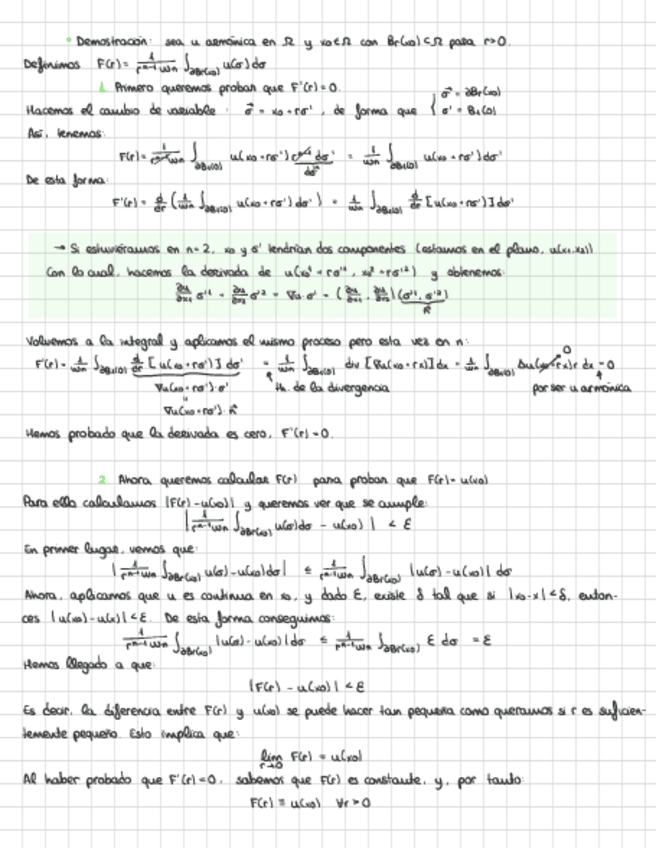 • Demostración: sea u armónica en Ω y x₀∈Ω con Br(x₀)⊂Ω para r>0.
Definimos F(r) = 1/(rⁿ⁻¹ωn) ∫∂Br(x₀) u(σ)dσ
1. Primero queremos probar que F'(r)=0.
Hacemos el cambio de variable: σ⃗ = x₀+rσ', de forma que { σ⃗ = ∂Br(x₀)
σ' = B₁(0)
Así, tenemos:
F(r) = 1/(rⁿ⁻¹ωn) ∫∂B₁(0) u(x₀+rσ') rⁿ⁻¹dσ' = 1/ωn ∫∂B₁(0) u(x₀+rσ')dσ'
dσ
De esta forma:
F'(r) = d/dr (1/ωn ∫∂B₁(0) u(x₀+rσ')dσ') = 1/ωn ∫∂B₁(0) d/dr [u(x₀+rσ')]dσ'
→ Si estuviéramos en n=2, x₀ y σ' tendrían dos componentes (estamos en el plano, u(x₁,x₂))
Con lo cual, hacemos la derivada de u(x₀¹+rσ'¹, x₀²+rσ'²) y obtenemos:
∂u/∂x₁ σ'¹ + ∂u/∂x₂ σ'² = ∇u·σ' = (∂u/∂x₁, ∂u/∂x₂)(σ'¹, σ'²)
n⃗
Volvemos a la integral y aplicamos el mismo proceso pero esta vez en n:
F'(r) = 1/ωn ∫∂B₁(0) d/dr [u(x₀+rσ')]dσ' = 1/ωn ∫∂B₁(0) div [∇u(x₀+rx)]dx = 1/ωn ∫∂B₁(0) Δu(x₀+rx)r dx = 0
0
∇u(x₀+rσ')·σ'
th. de la divergencia
por ser u armónica
∇u(x₀+rσ')·n⃗
Hemos probado que la derivada es cero, F'(r)=0.
2. Ahora queremos calcular F(r) para probar que F(r)=u(x₀)
Para ello calculamos |F(r)-u(x₀)| y queremos ver que se cumple:
|1/(rⁿ⁻¹ωn) ∫∂Br(x₀) u(σ)dσ - u(x₀)| < ε
En primer lugar, vemos que:
|1/(rⁿ⁻¹ωn) ∫∂Br(x₀) u(σ)-u(x₀)dσ| ≤ 1/(rⁿ⁻¹ωn) ∫∂Br(x₀) |u(σ)-u(x₀)| dσ
Ahora, aplicamos que u es continua en x₀, y dado ε, existe δ tal que si |x₀-x|<δ, enton-
ces |u(x₀)-u(x)|<ε. De esta forma conseguimos:
1/(rⁿ⁻¹ωn) ∫∂Br(x₀) |u(σ)-u(x₀)|dσ ≤ 1/(rⁿ⁻¹ωn) ∫∂Br(x₀) ε dσ = ε
Hemos llegado a que:
|F(r) - u(x₀)| < ε
Es decir, la diferencia entre F(r) y u(x₀) se puede hacer tan pequeña como queramos si r es suficien-
temente pequeño. Esto implica que:
lim r→0 F(r) = u(x₀)
Al haber probado que F'(r)=0, sabemos que F(r) es constante, y, por tanto:
F(r) ≡ u(x₀) ∀r>0